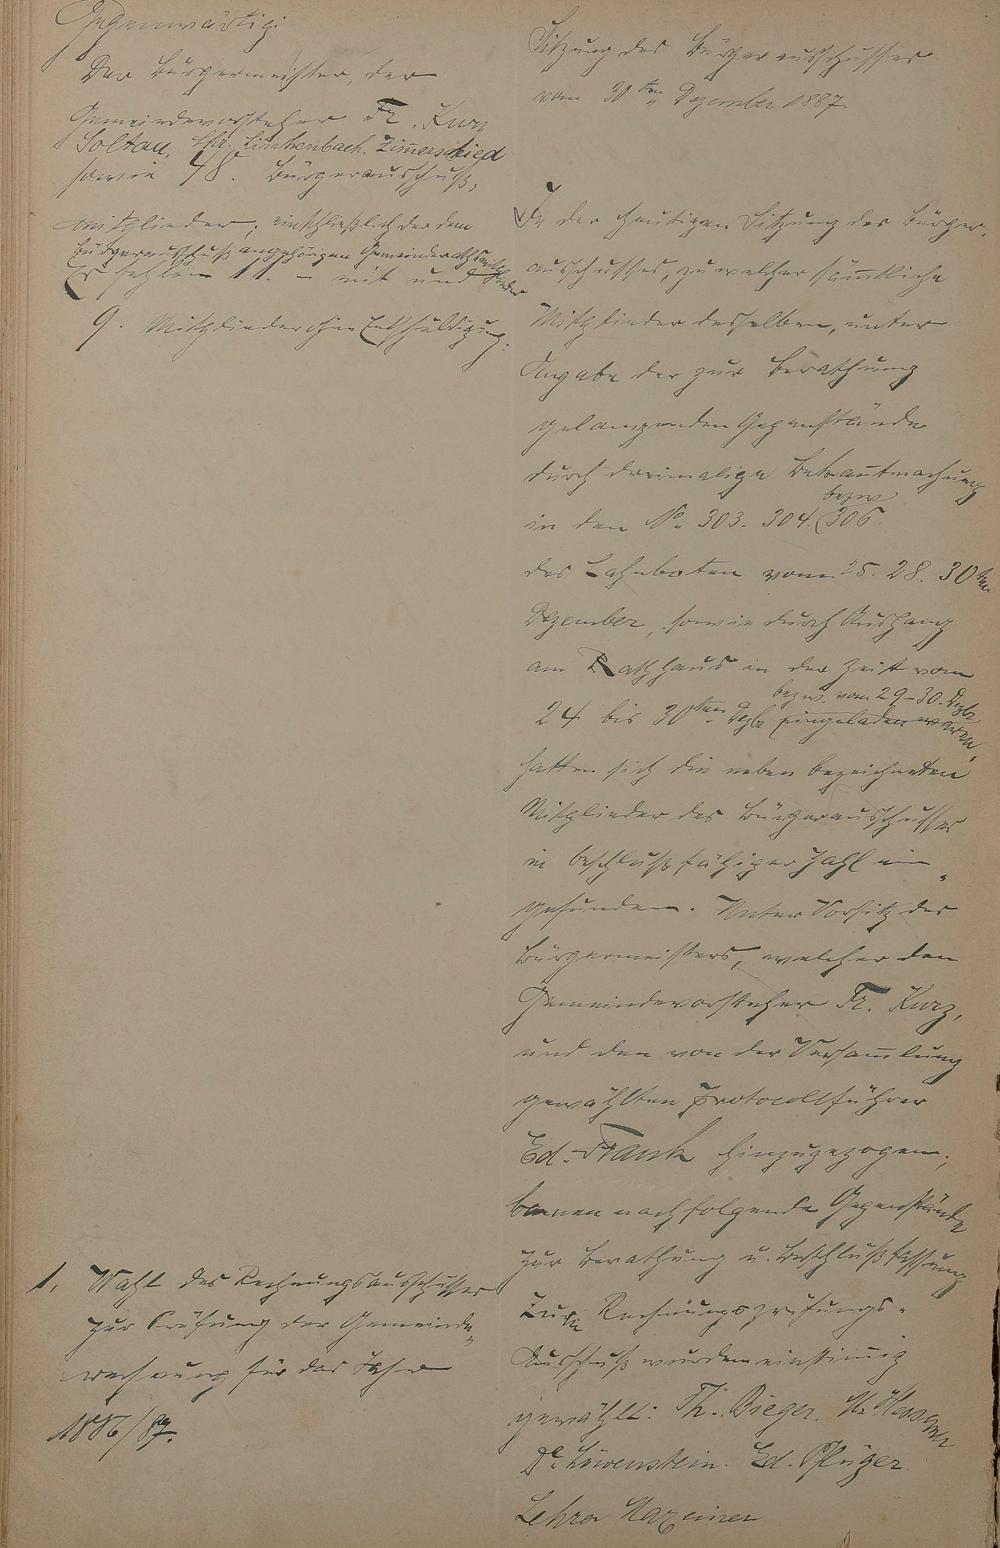 Gegenwärtig:
Der Bürgermeister, der
Gemeindevorsteher Fr. Kurz
Soltau, Chr. Linkenbach. Zimerschied
sowie 48. Bürgerausschuß-
mitglieder, einschließlich der dem
Bürgerausschuß angehörigen Gemeinderathsmitglieder
Es fehlen 11. – mit und
9. Mitglieder ohne Entschuldigung.
1. Wahl des Rechnungsausschusses
zur Prüfung der Gemeinde-
rechnung für das Jahr
1886/87.
Sitzung des Bürgerausschusses
vom 30ten Dezember 1887.
In der heutigen Sitzung des Bürger-
ausschusses, zu welcher sämtliche
Mitglieder desselben, unter
Angabe der zur Berathung
gelangenden Gegenstände
durch dreimalige Bekantmachung
in den No. 303. 304. bezw 306.
des Lahnboten vom 25. 28. 30ten
Dezember, sowie durch Aushang
am Rathhaus in der Zeit vom
bezw. vom 29–30. Dezbr
24 bis 30ten Dezbr eingeladen waren,
hatten sich die neben bezeichneten
Mitglieder des Bürgerausschusses
in beschlußfähiger Zahl ein-
gefunden. Unter Vorsitz des
Bürgermeisters, welcher den
Gemeindevorsteher Fr. Kurz,
und den von der Versamlung
gewählten Protocollführer
Ed. Frank hinzugezogen,
kamen nachfolgende Gegenstände
zur Berathung u. Beschlußfassung
Zur Rechnungsprüfungs-
Ausschuß wurden einstimig
gewählt: Th. Bieger. U.
Dr. Löwenstein. Ed. Pflüger
Lehrer